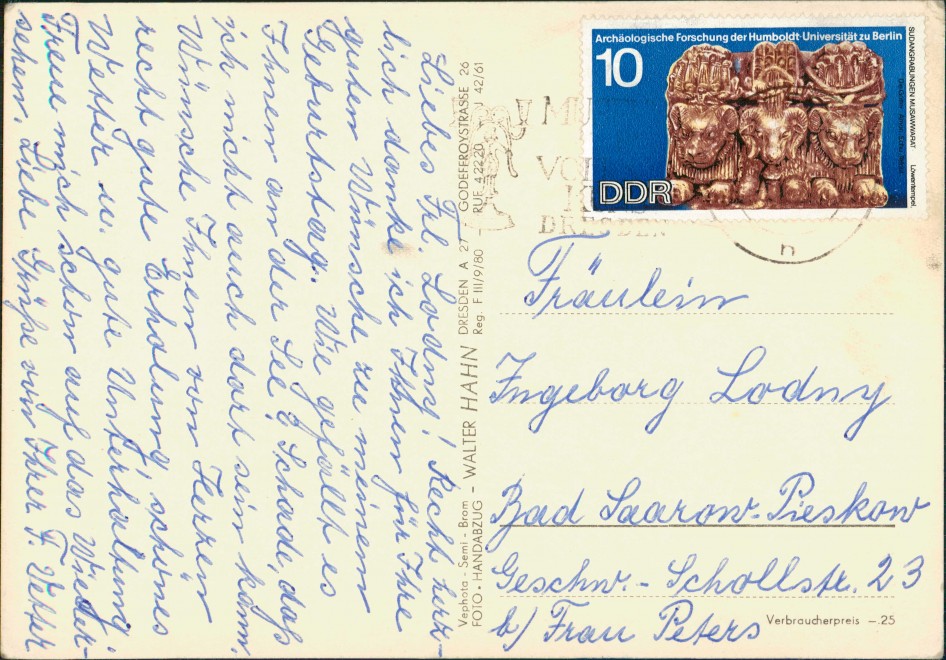 Liebes Frl. Lodny! Recht herz-
lich danke ich Ihnen für Ihre
guten Wünsche zu meinem
Geburtstag. Wie gefällt es
Ihnen an der See? Schade, daß
ich nicht auch dort sein kann.
Wünsche Ihnen von Herzen
recht gute Erholung, schönes
Wetter u. gute Unterhaltung.
Freue mich schon auf das Wieder-
sehen. Liebe Grüße von Ihrer F. Vetter
Vephota - Semi - Brom
FOTO - HANDABZUG - WALTER HAHN DRESDEN A 27 - GODEFFROYSTRASSE 26
Reg. F III/9/80 - RUF 42220 42/61
Archäologische Forschung der Humboldt-Universität zu Berlin
10
DDR
SUDANGRABUNGEN MUSAWWARAT Löwentempel
DRESDEN
n
Fräulein
Ingeborg Lodny
Bad Saarow-Pieskow
Geschw.-Schollstr. 23
b/ Frau Peters
Verbraucherpreis -.25